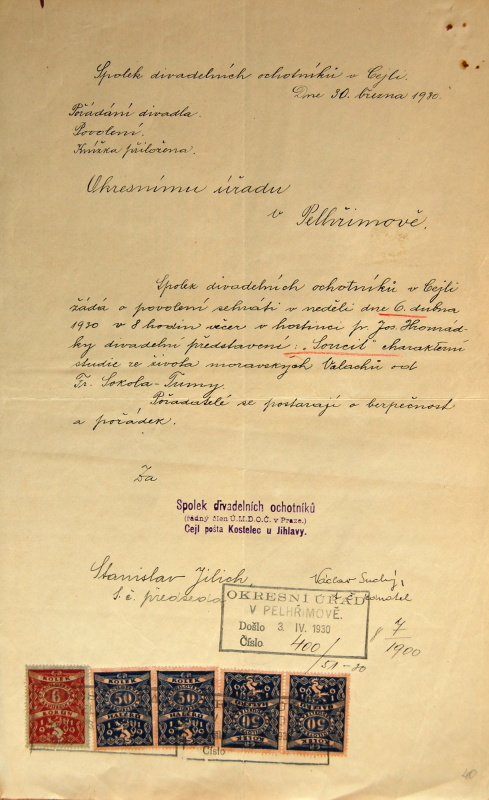 Spolek divadelních ochotníků v Cejli.
Dne 30. března 1930.
Pořádání divadla.
Povolení.
Knížka přiložena.
Okresnímu úřadu
v Pelhřimově.
Spolek divadelních ochotníků v Cejli
žádá o povolení sehráti v neděli dne 6. dubna
1930 v 8 hodin večer v hostinci p. Jos. Hromád-
ky divadelní představení: „Soucit" charakterní
studie ze života moravských Valachů od
Fr. Sokola-Tumy
Pořadatelé se postarají o bezpečnost
a pořádek.
Za
Spolek divadelních ochotníků
(řádný člen Ú.M.D.O.Č. v Praze.)
Cejl pošta Kostelec u Jihlavy.
Stanislav Jilich,
t. č. předseda
Václav Suchý,
t. č. jednatel
OKRESNÍ ÚŘAD
V PELHŘIMOVĚ.
Došlo 3. IV. 1930
Číslo 400/
8 7/1900
KOLEK KOLEK KOLEK
50 50 50 50
Číslo
40